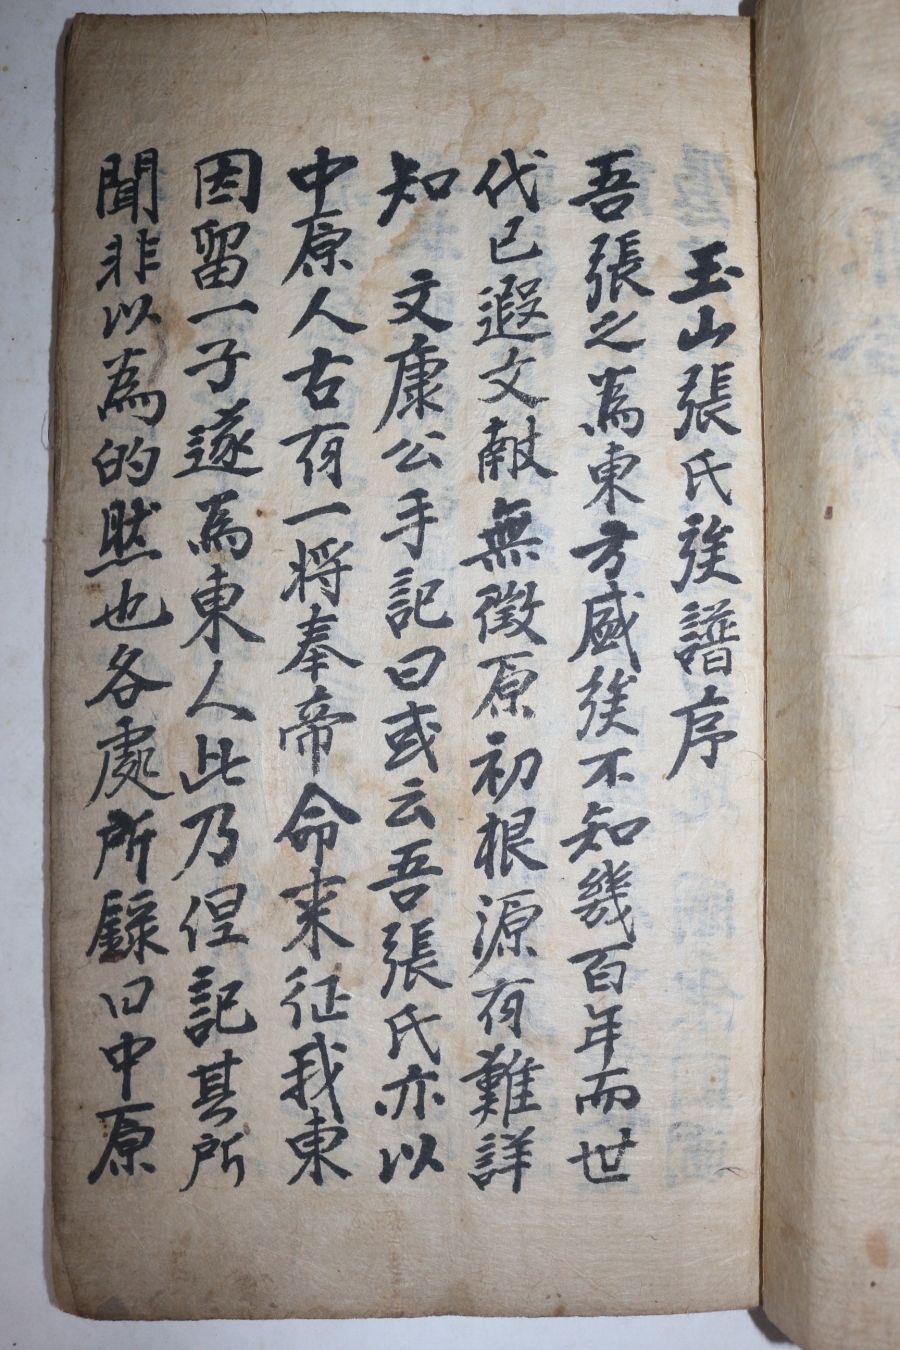 玉山張氏族譜序
吾張之爲東方盛族不知幾百年而世
代已遐文献無徵原初根源有難詳
知 文康公手記曰或云吾張氏亦以
中原人古有一将奉帝命来征我東
因留一子遂爲東人此乃但記其所
聞非以爲的然也各處所錄曰中原